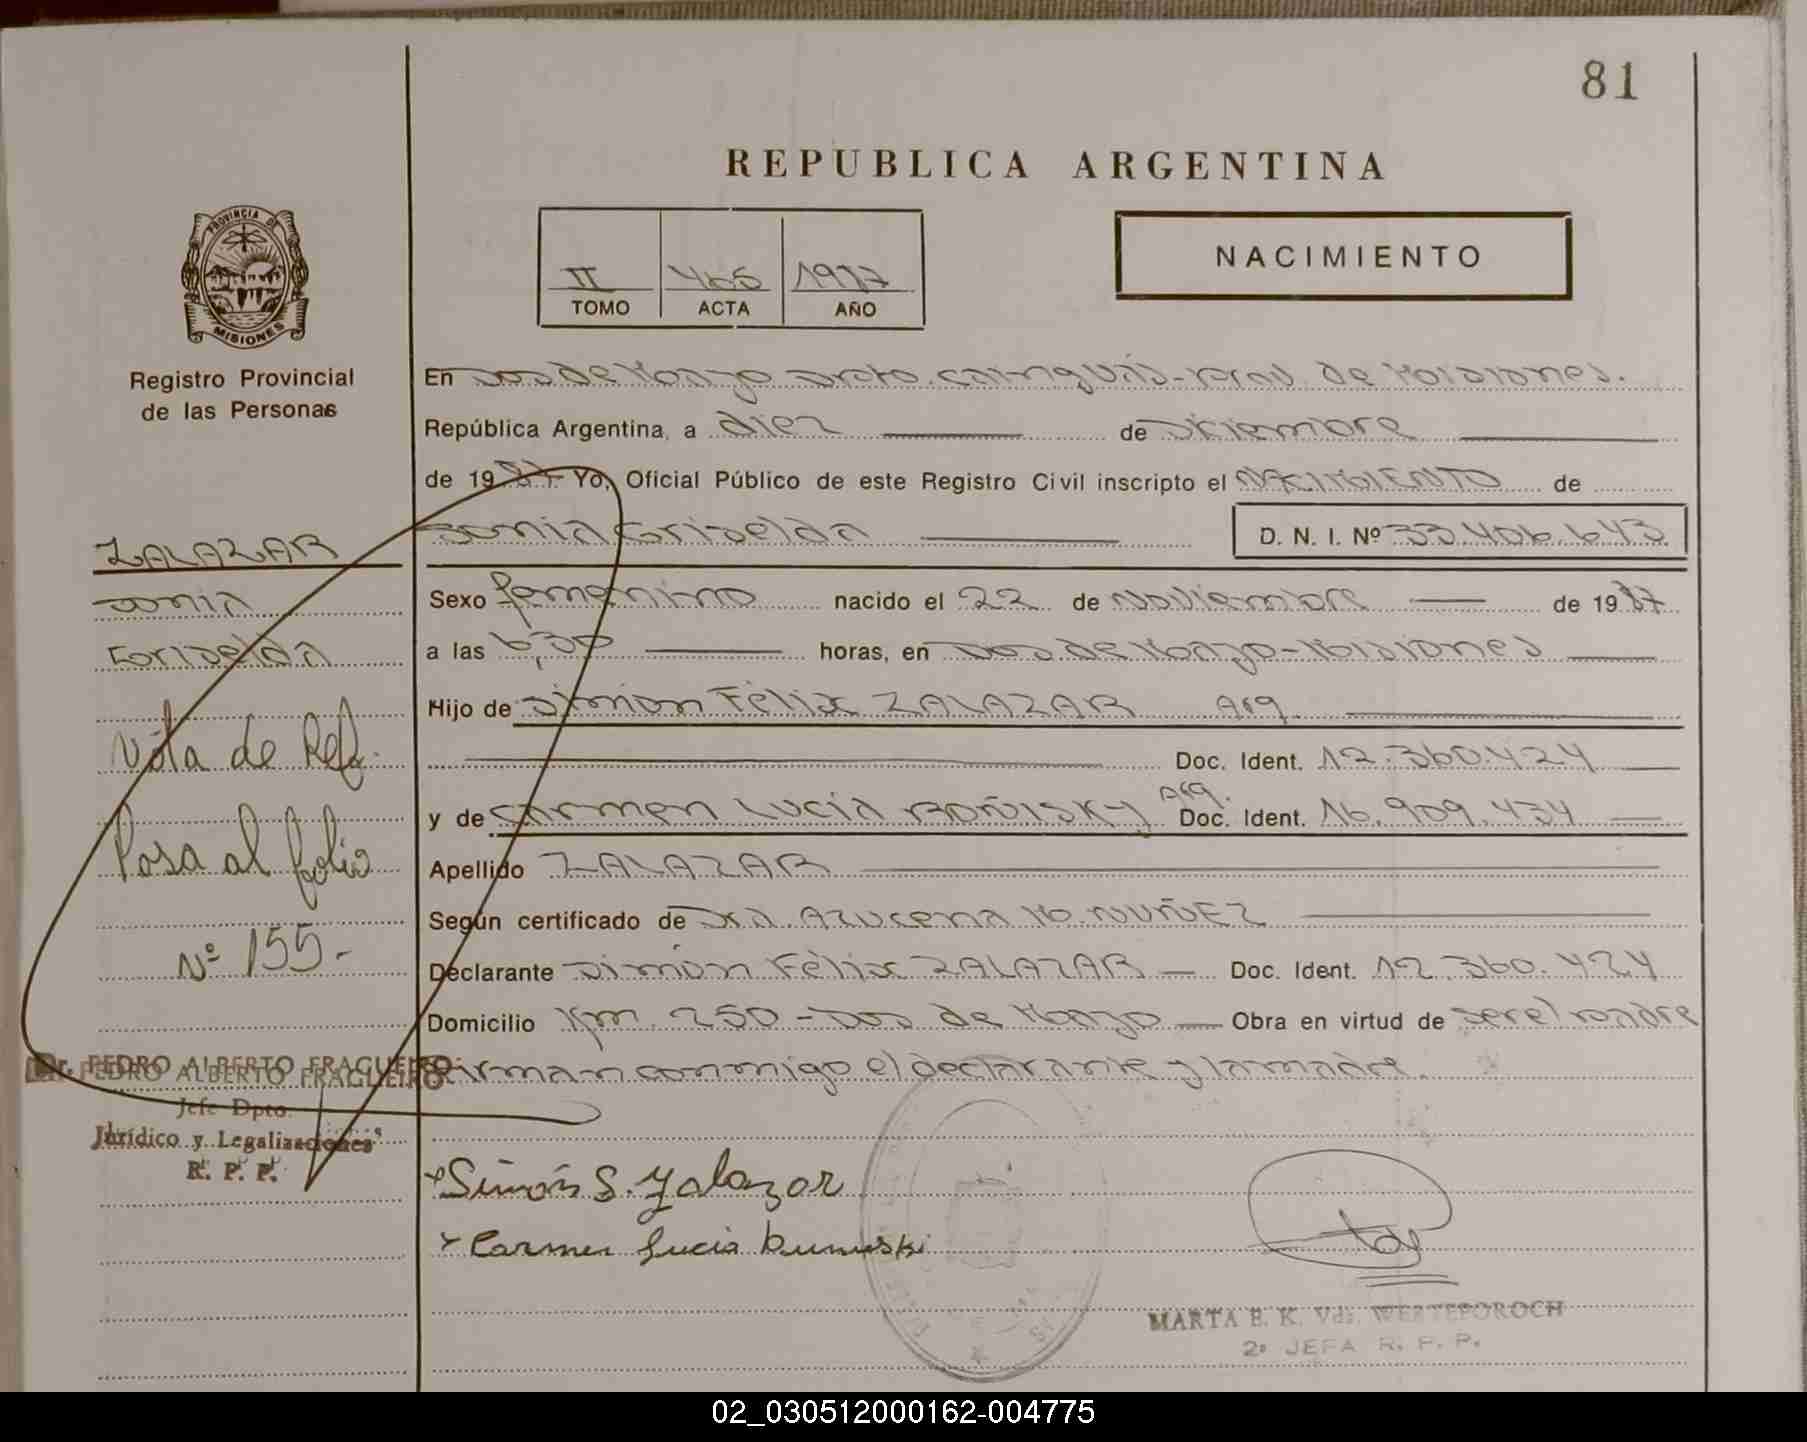 81
REPUBLICA ARGENTINA
II 465 1987
TOMO ACTA AÑO
NACIMIENTO
PROVINCIA DE
MISIONES
Registro Provincial
de las Personas
En Dos de Mayo Dpto. Cainguás - Prov. de Misiones.
República Argentina, a diez de Diciembre
de 1987 Yo, Oficial Público de este Registro Civil inscripto el NACIMIENTO de
Sonia Griselda D. N. I. Nº 33.406.643
Sexo femenino nacido el 22 de Noviembre de 1987
a las 6,30 horas, en Dos de Mayo - Misiones
Hijo de Simón Félix ZALAZAR Arg.
Doc. Ident. 12.360.424
y de Carmen Lucía Arg. Doc. Ident. 16.909.434
Apellido ZALAZAR
Según certificado de Dra. Azucena M. NUÑEZ
Declarante Simón Félix ZALAZAR Doc. Ident. 12.360.424
Domicilio Km. 250 - Dos de Mayo Obra en virtud de ser el padre
Firman conmigo el declarante y la madre.
ZALAZAR
Sonia
Griselda
Nota de Ref.
Pasa al folio
Nº 155.-
Dr. PEDRO ALBERTO FRAGUEIRO
Jefe Dpto.
Jurídico y Legalizaciones
R. P. P.
Simón S. Zalazar
Carmen Lucia
MARTA E. K. Vda. WERTEPOROCH
2º JEFA R. P. P.
02_030512000162-004775